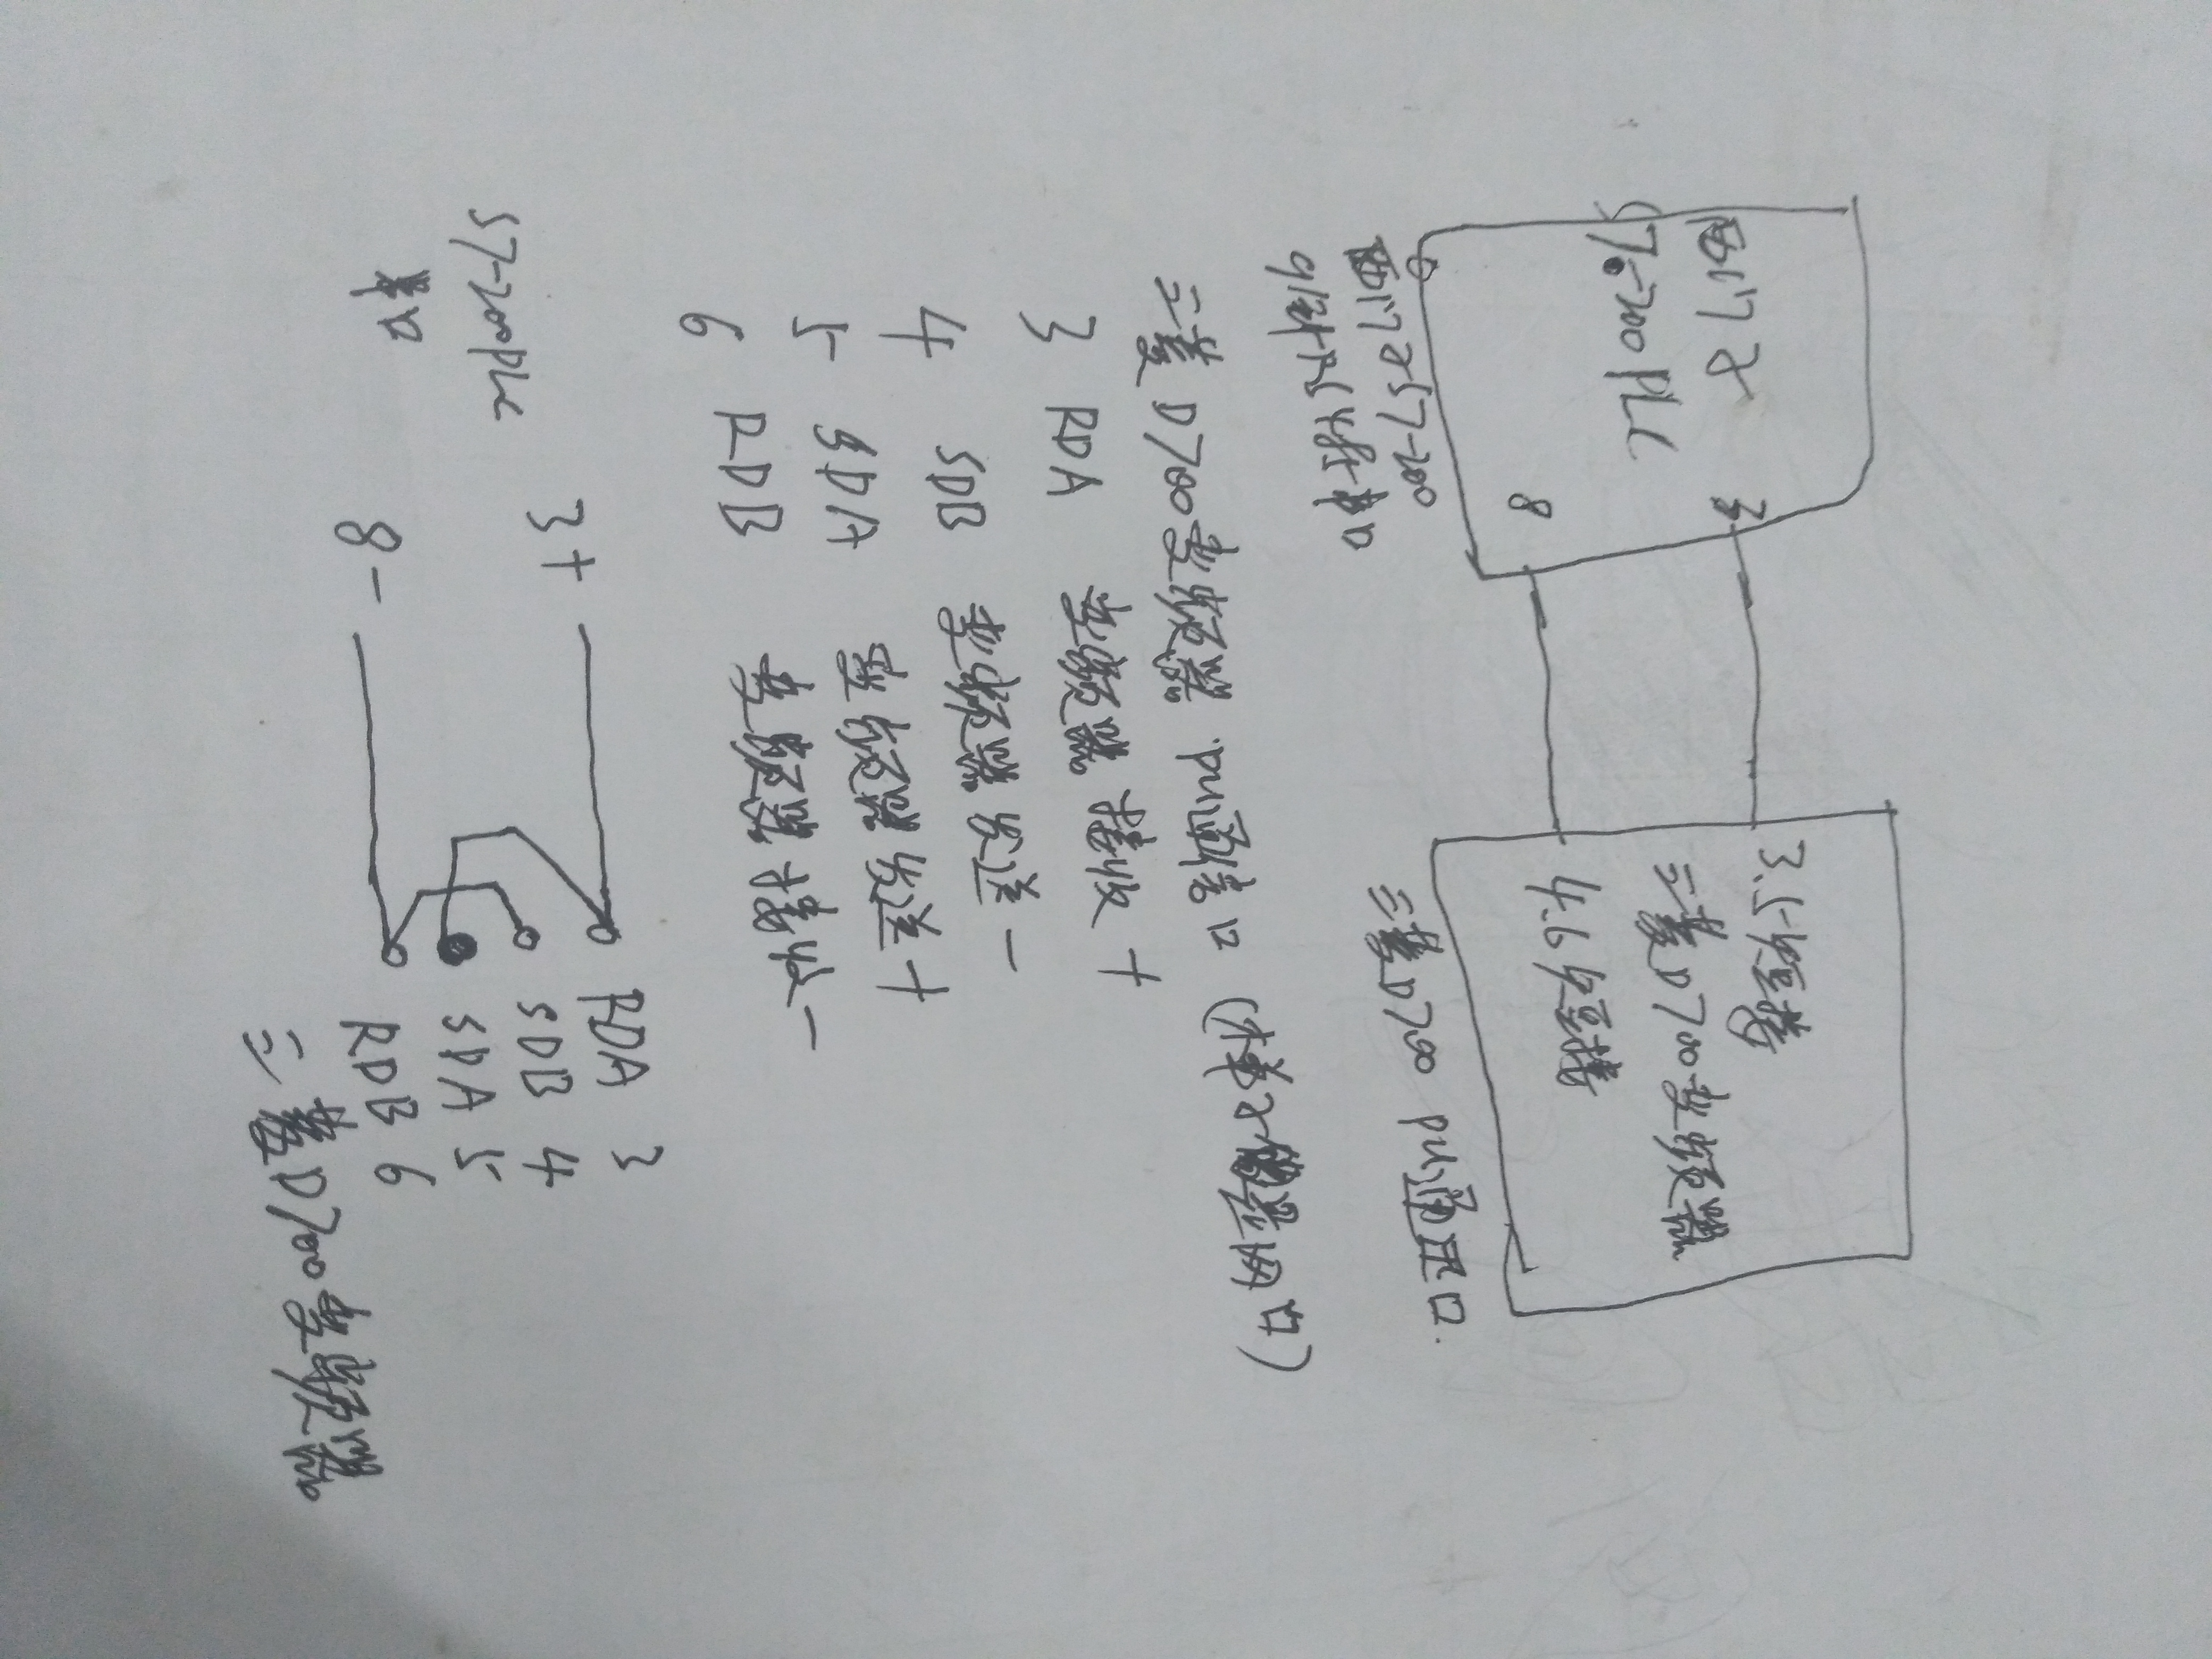 西门子
S7-200PLC
3
8
3.5短接
三菱D700变频器
4.6短接
西门子S7-200
9针串口
三菱D700 PU通讯口.
三菱D700变频器 PU通信口(水晶头网口)
3 RDA 变频器接收+
4 SDB 变频器发送-
5 SDA 变频器发送+
6 RDB 变频器接收-
S7-200PLC
3+
8-
RDA 3
SDB 4
SDA 5
RDB 6
三菱D700变频器